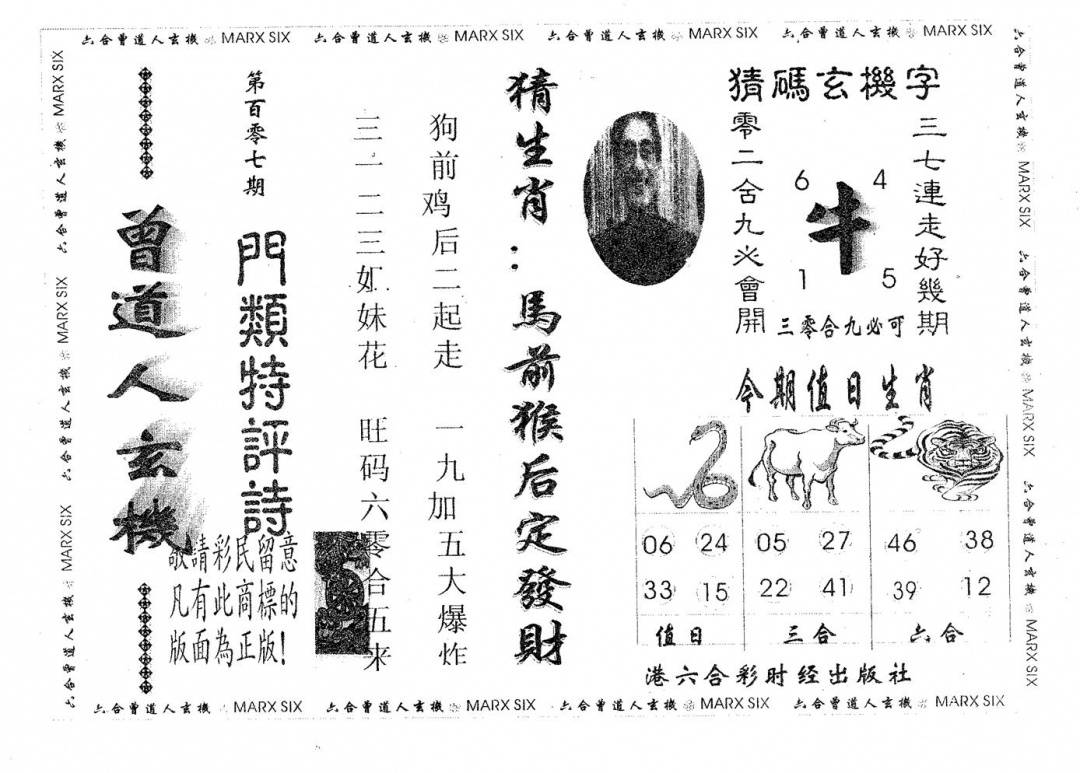 六合曾道人玄機 MARX SIX 六合曾道人玄機 MARX SIX 六合曾道人玄機 MARX SIX 六合曾道人玄機 MARX SIX
六合曾道人玄機 MARX SIX 六合曾道人玄機 MARX SIX 六合曾道人玄機 MARX SIX
六合曾道人玄機 MARX SIX 六合曾道人玄機 MARX SIX 六合曾道人玄機 MARX SIX
猜碼玄機字
三七連走好幾期
零二合九必會開
6 4
牛
1 5
三零合九必可
猜生肖：馬前猴后定發財
狗前鸡后二起走 一九加五大爆炸
三一二三姐妹花 旺码六零合五来
第百零七期
門類特評詩
曾道人玄機
敬請彩民留意
凡有此商標的
版面為正版!
今期值日生肖
06 24 05 27 46 38
33 15 22 41 39 12
值日 三合 六合
港六合彩时经出版社
六合曾道人玄機 MARX SIX 六合曾道人玄機 MARX SIX 六合曾道人玄機 MARX SIX 六合曾道人玄機 MARX SIX